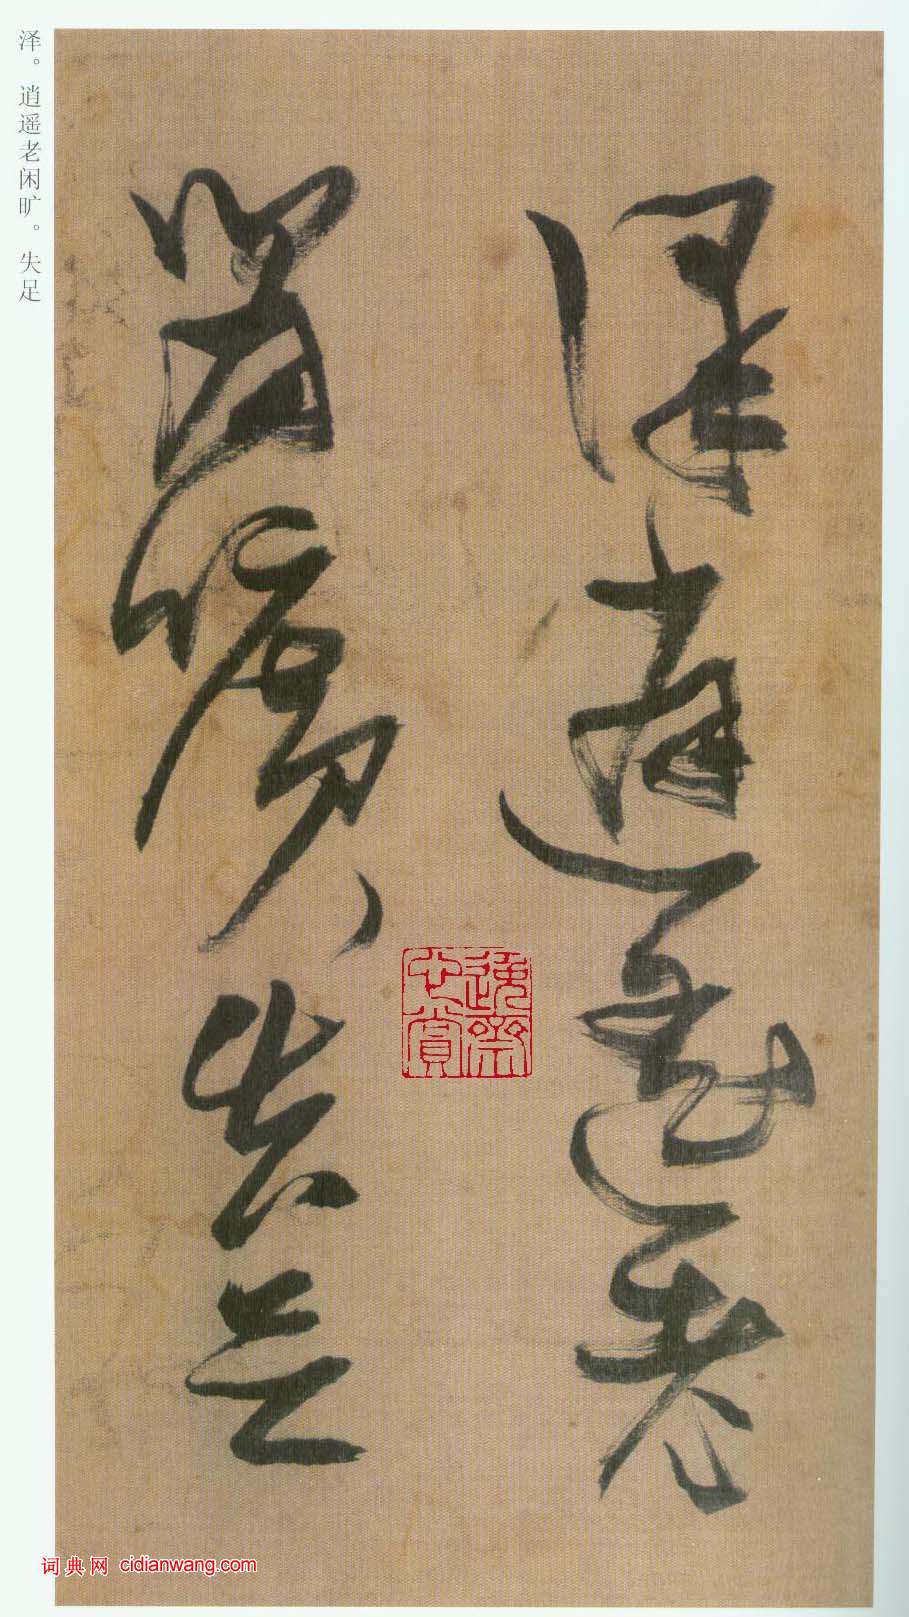 澤逍遥老
閒曠失足
泽。逍遥老闲旷。失足
词典网 cidianwang.com